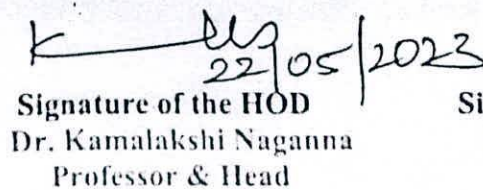 22/05/2023
Signature of the HOD Si
Dr. Kamalakshi Naganna
Professor & Head